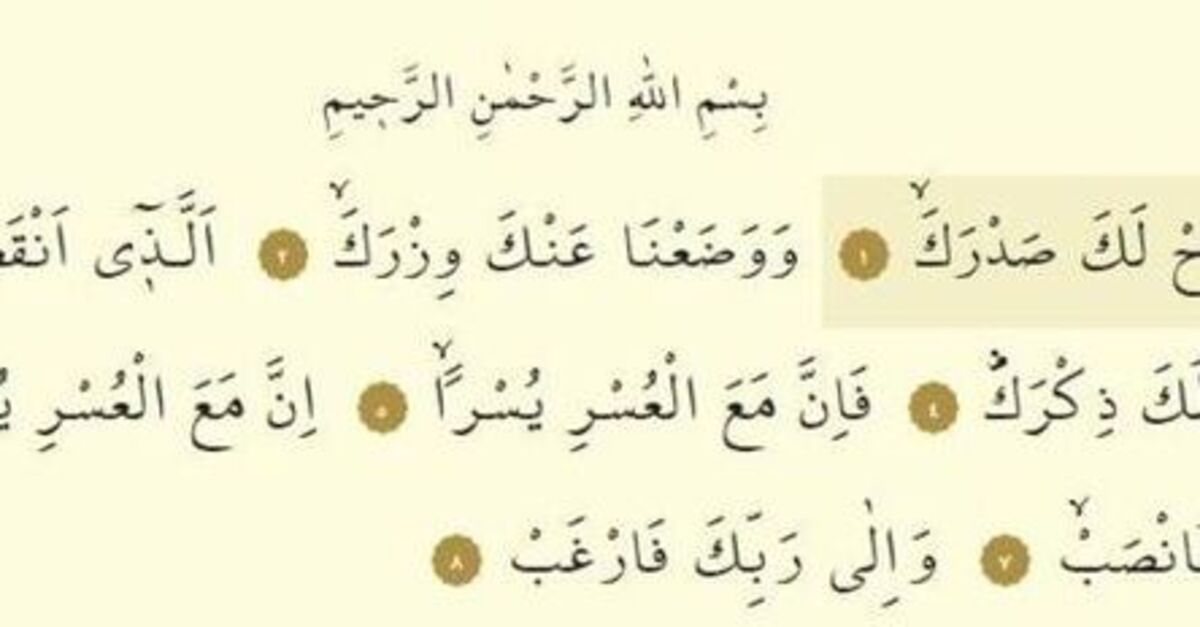 بِسْمِ اللّٰهِ الرَّحْمٰنِ الرَّح۪يمِ
لَكَ صَدْرَكَۙ ١ وَوَضَعْنَا عَنْكَ وِزْرَكَۙ ٢ اَلَّـذ۪ٓى
ذِكْرَكَۜ ٤ فَاِنَّ مَعَ الْعُسْرِ يُسْرًاۙ ٥ اِنَّ مَعَ الْعُسْرِ
٧ وَاِلٰى رَبِّكَ فَارْغَبْ ٨